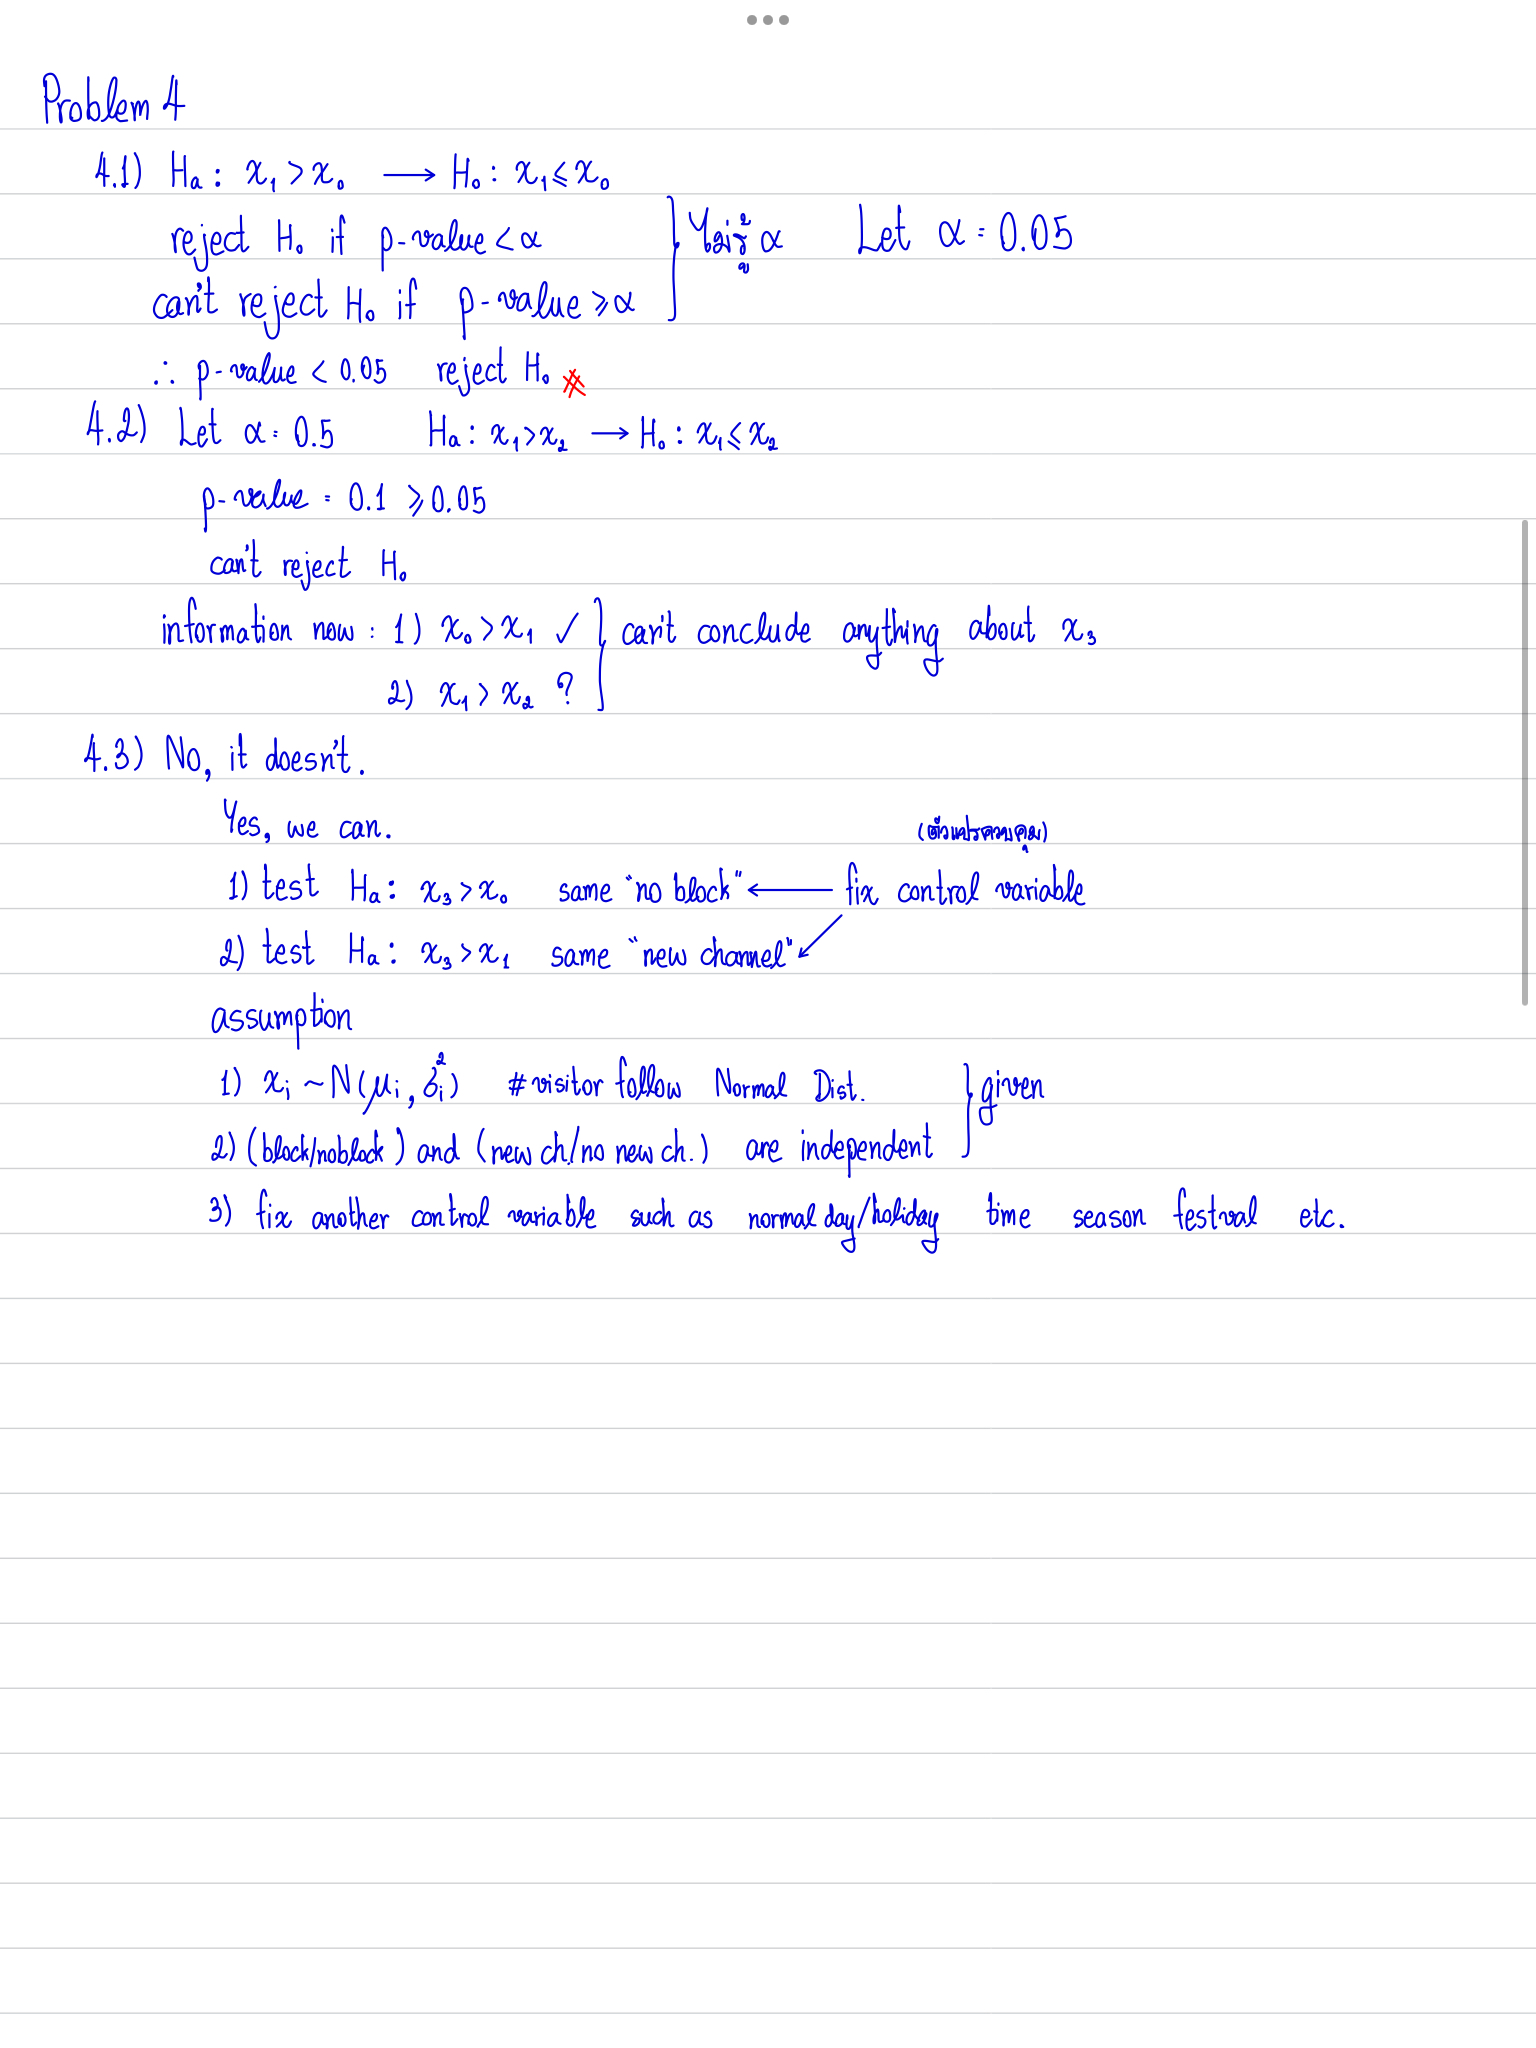 Problem 4
4.1) Ha : x₁ > x₀ → H₀ : x₁ ≤ x₀
reject H₀ if p-value < α
can't reject H₀ if p-value ≥ α } ไม่รู้ α Let α = 0.05
∴ p-value < 0.05 reject H₀ #
4.2) Let α = 0.5 Ha : x₁ > x₂ → H₀ : x₁ ≤ x₂
p-value = 0.1 ≥ 0.05
can't reject H₀
information now : 1) x₀ > x₁ ✓ } can't conclude anything about x₃
2) x₁ > x₂ ?
4.3) No, it doesn't.
Yes, we can.
(ตัวแปรควบคุม)
1) test Ha : x₃ > x₀ same "no block" ← fix control variable
2) test Ha : x₃ > x₁ same "new channel"
assumption
1) xᵢ ~ N(μᵢ, σᵢ²) # visitor follow Normal Dist. } given
2) (block/noblock) and (new ch./no new ch.) are independent
3) fix another control variable such as normal day/holiday time season festval etc.